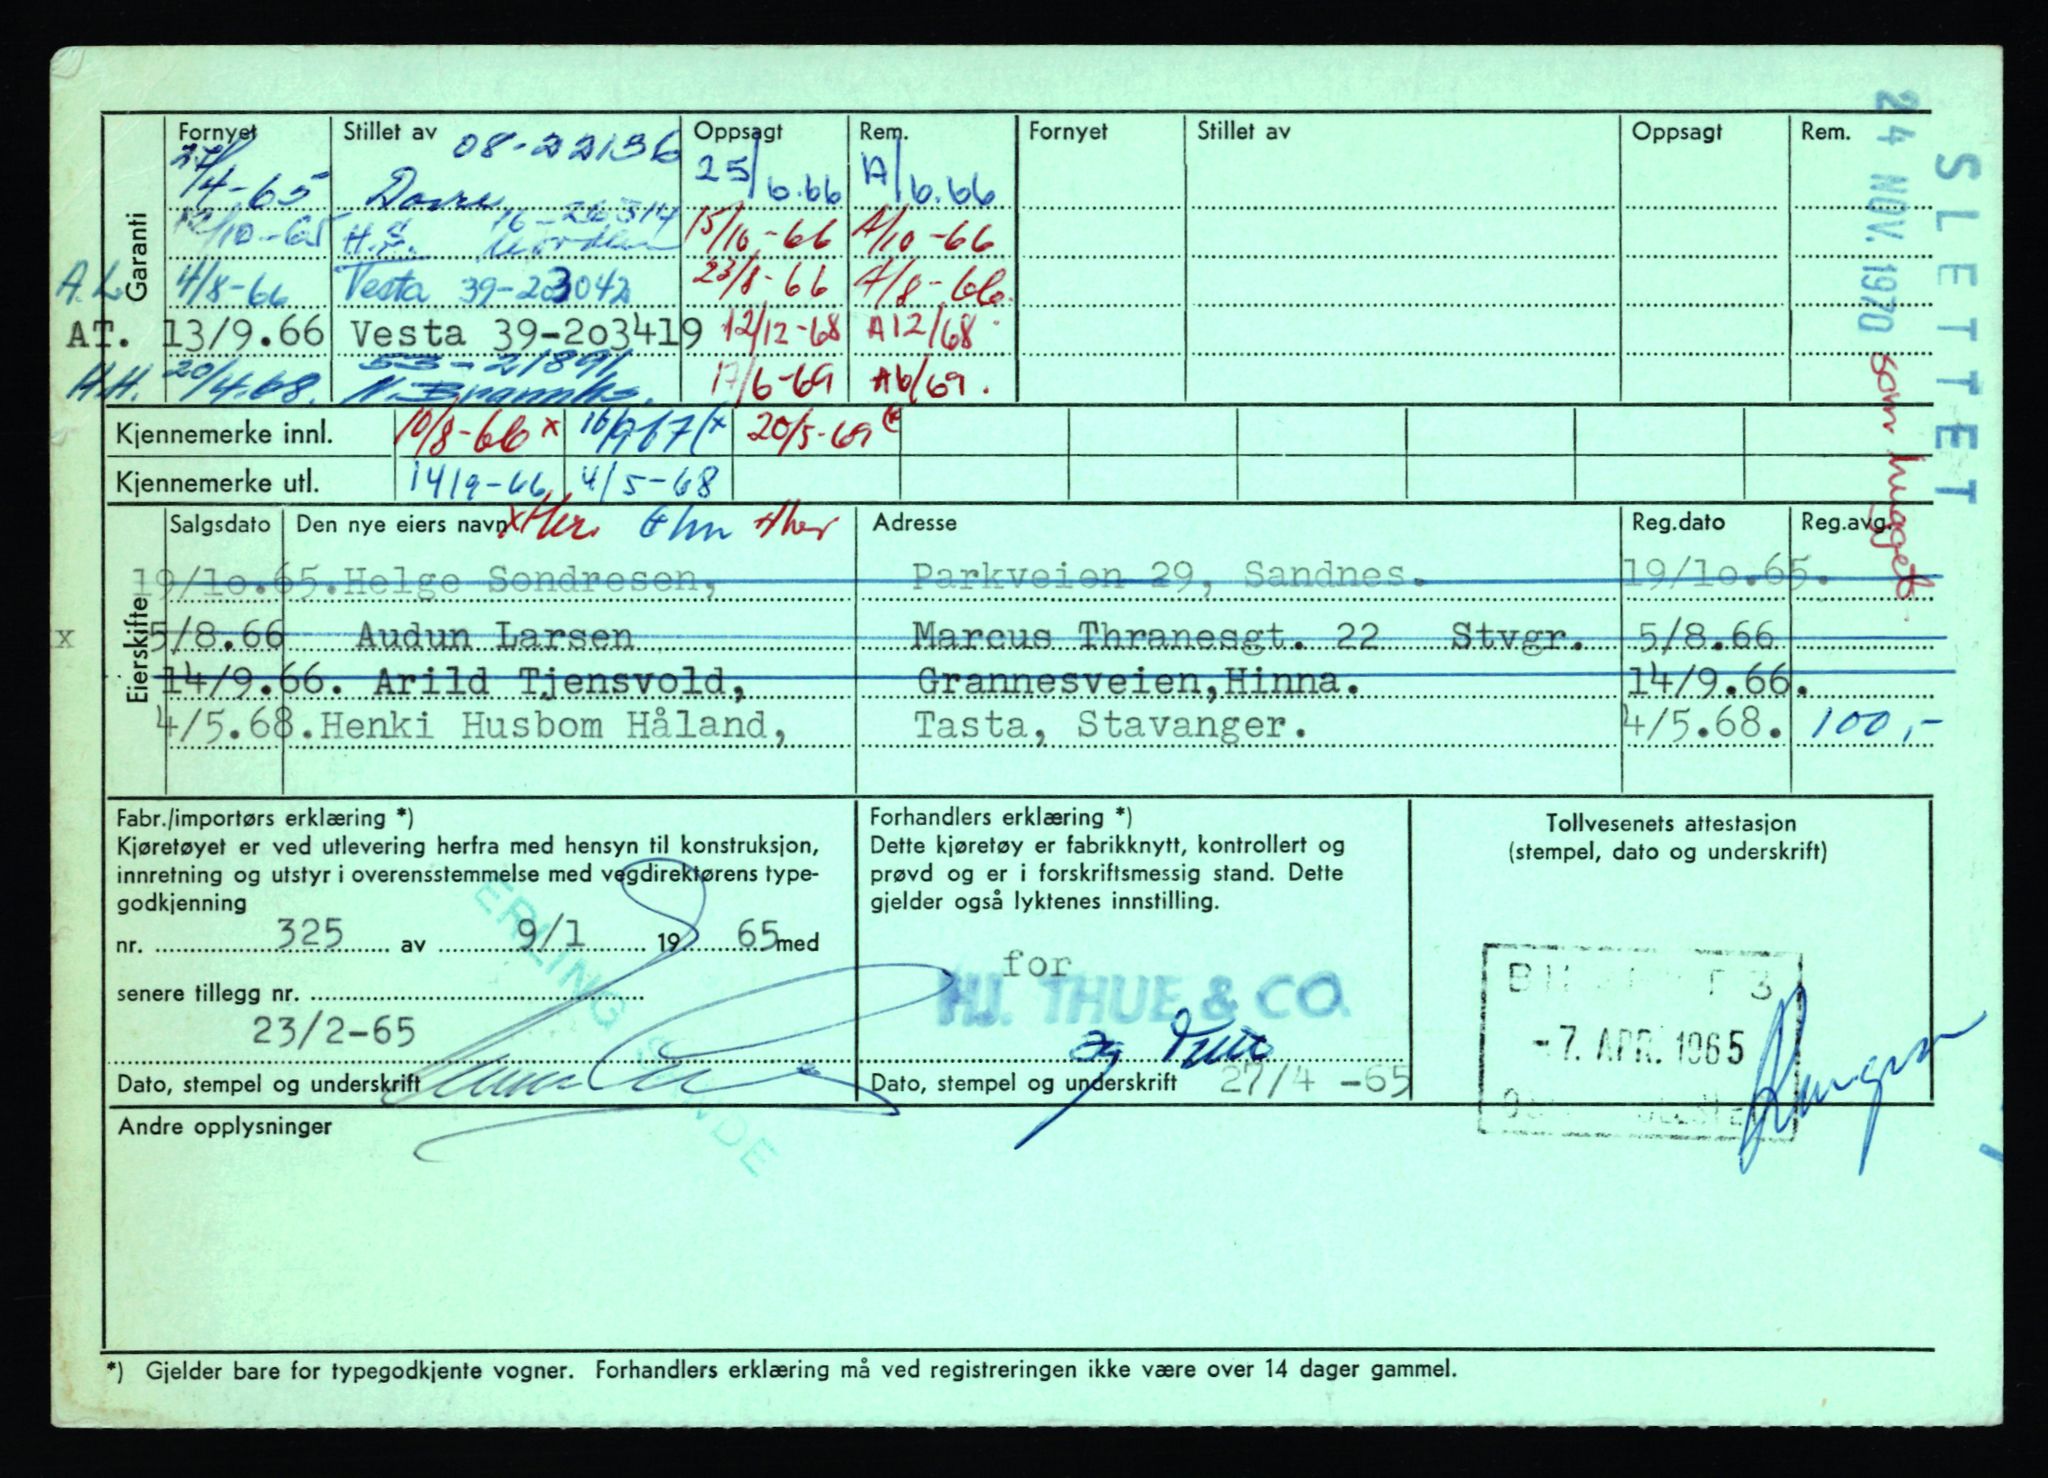 Garanti
Fornyet Stillet av Oppsagt Rem. Fornyet Stillet av Oppsagt Rem.
27/4-65 08-22136 25/6.66 A/6.66
Dovre
12/10-65 H.S. 16-26314 15/10-66 A/10-66
A.L 4/8-66 Vesta 39-203042 23/8-66 A/8-66.
AT. 13/9.66 Vesta 39-203419 12/12-68 A12/68
H.H. 20/4.68. 53-21891, 17/6-69 A6/69.
Kjennemerke innl. 10/8-66 x 16/967 (x 20/5-69 (x
Kjennemerke utl. 14/9-66 4/5-68
Eierskifte
Salgsdato Den nye eiers navn Adresse Reg.dato Reg.avg.
19/10.65. Helge Sondresen, Parkveien 29, Sandnes. 19/10.65.
x 5/8.66 Audun Larsen Marcus Thranesgt. 22 Stvgr. 5/8.66
14/9.66. Arild Tjensvold, Grannesveien, Hinna. 14/9.66.
4/5.68. Henki Husbom Håland, Tasta, Stavanger. 4/5.68. 100,-
Fabr./importørs erklæring *)
Kjøretøyet er ved utlevering herfra med hensyn til konstruksjon,
innretning og utstyr i overensstemmelse med vegdirektørens type-
godkjenning
nr. 325 av 9/1 19 65 med
senere tillegg nr.
23/2-65
Dato, stempel og underskrift
ERLING SANDE
Forhandlers erklæring *)
Dette kjøretøy er fabrikknytt, kontrollert og
prøvd og er i forskriftsmessig stand. Dette
gjelder også lyktenes innstilling.
for
HJ. THUE & CO.
Dato, stempel og underskrift 27/4 -65
Tollvesenets attestasjon
(stempel, dato og underskrift)
-7. APR. 1965
Andre opplysninger
*) Gjelder bare for typegodkjente vogner. Forhandlers erklæring må ved registreringen ikke være over 14 dager gammel.
SLETTET
24 NOV. 1970 som hugget